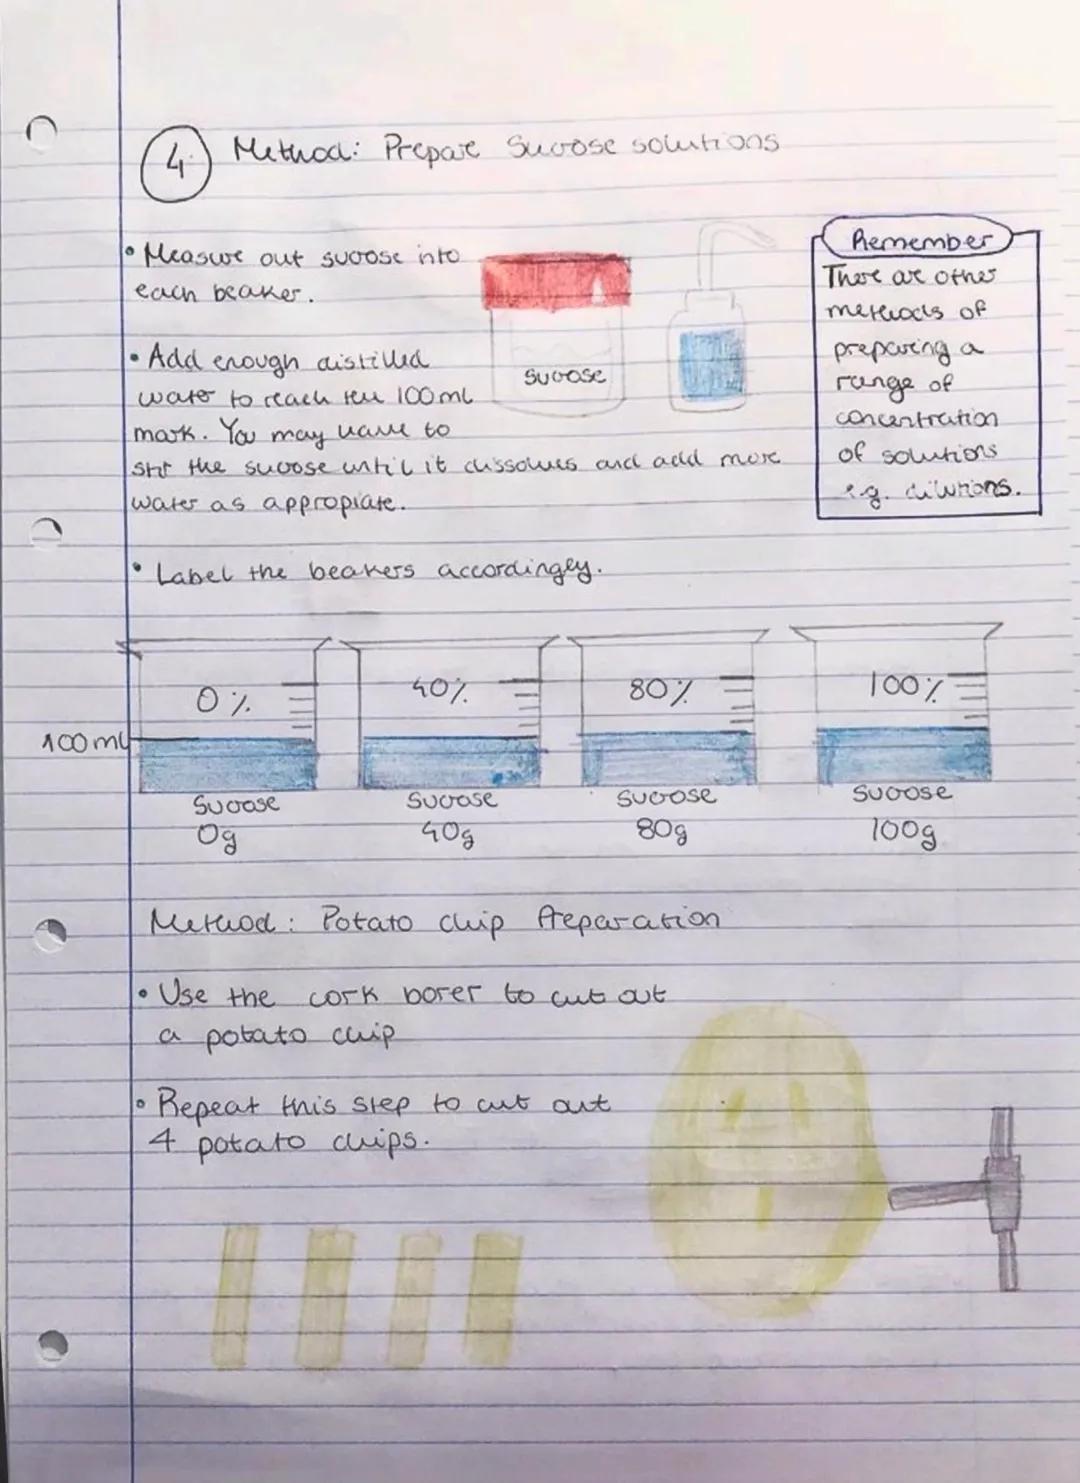 4. Method: Prepare Sucrose solutions
• Measure out sucrose into
each beaker.
• Add enough distilled
water to reach the 100ml
mark. You may have to
stir the sucrose until it dissolves and add more
water as appropiate.
Sucrose
Remember
There are other
methods of
preparing a
range of
concentration
of solutions
e.g. dilutions.
• Label the beakers accordingley.
0% 40% 80% 100%
100ml
Sucrose Sucrose Sucrose Sucrose
0g 40g 80g 100g
Method: Potato chip Preparation
• Use the cork borer to cut out
a potato chip
• Repeat this step to cut out
4 potato chips.